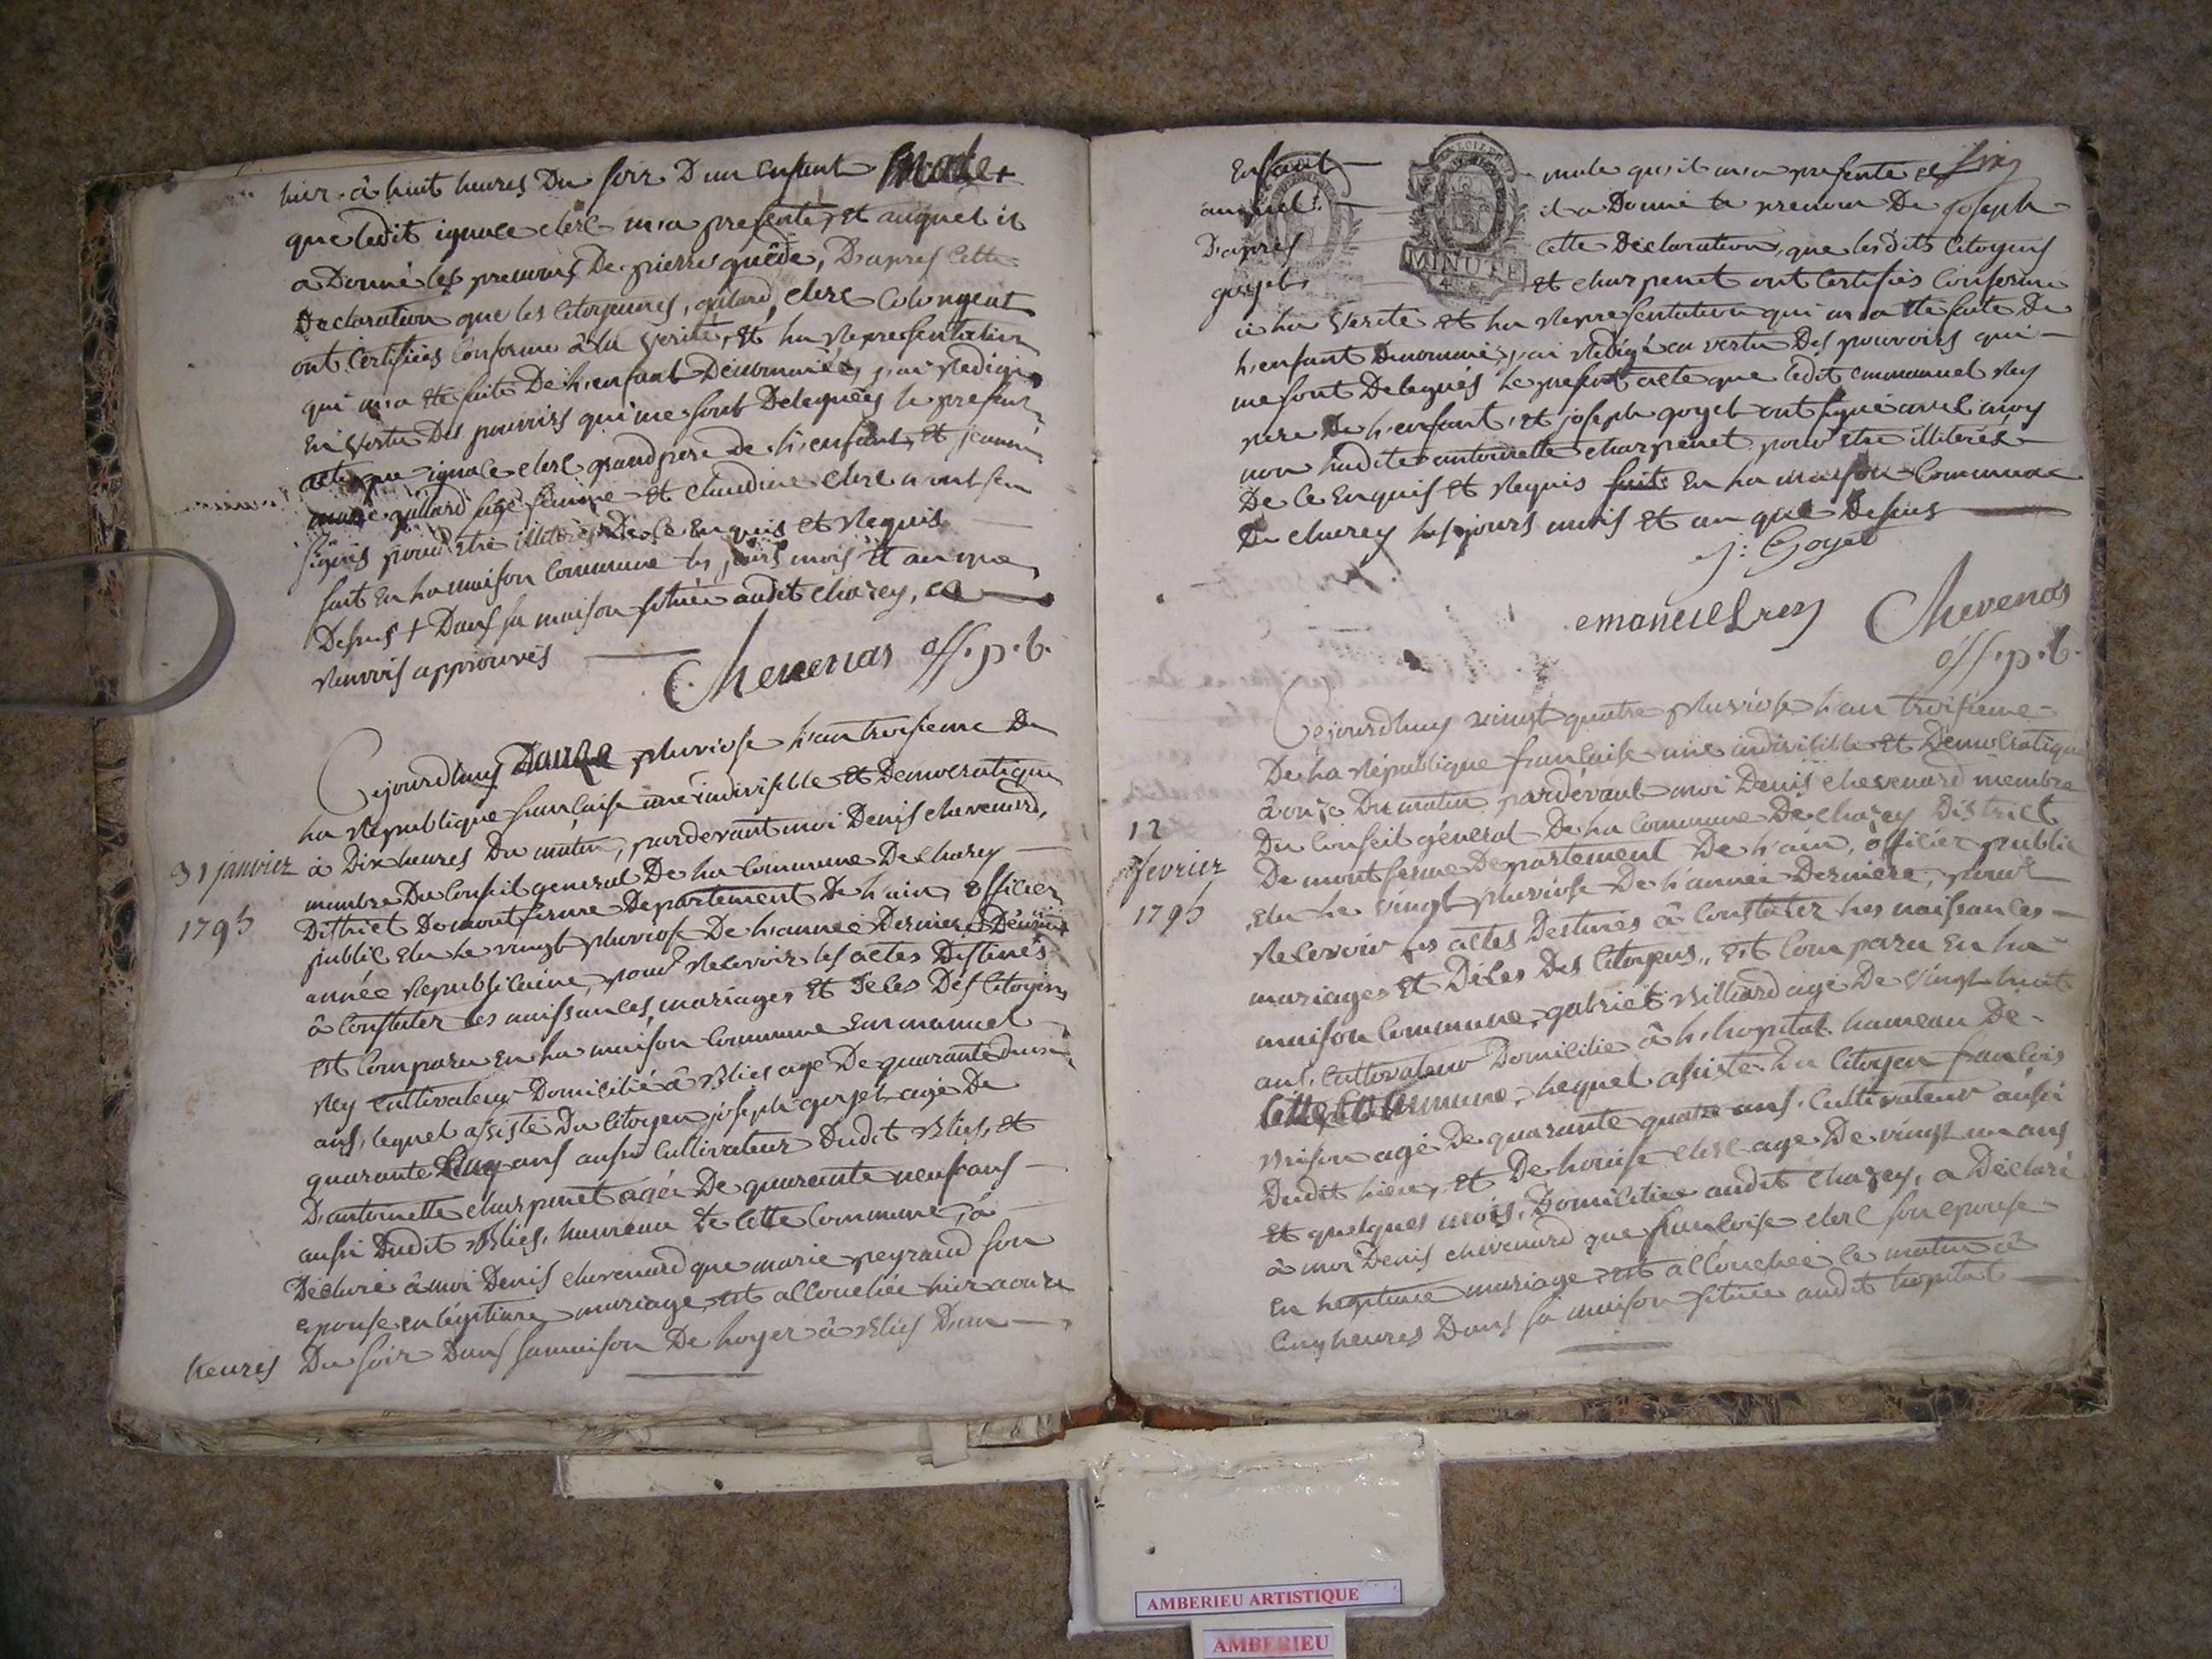 hier à huit heures Du soir D'un Enfant Male +
que ledit ignace clerc m'a presenté, et auquel il
a Donné les prenoms De pierre , D'apres Cette
Declaration que les Citoyennes, galard, clerc Colongeat
ont Certifiés Conforme à la verité, et la Representation
qui m'a été faite De l'enfant Denommé, j'ai Redigé
En vertu Des pouvoirs qui me sont Delegués le present
acte que ignace clerc grand pere de l'enfant, et jeanne
marie galland sage femme et claudine clerc n'ont sin
signés pour être illiterés De ce Enquis et Requis
fait En la maison Commune les jours mois et an que
Desus + Dans sa maison située audit chazey,
Renvois approuvés
Chevenas off. p. b.
Cejourdhuy Douze pluviose l'an troisieme De
la Republique francaise une indivisible et Democratique
31 janvier à Dix heures Du matin, pardevant moi Denis chevenard,
membre Du Conseil general De la Commune De chazey
1795 District De montferme Departement De l'ain, officier
public elu le vingt pluviose De l'année Derniere Deuxieme
année Republicaine, pour Recevoir les actes Destinés
à Constater les naissances, mariages et Deces Des Citoyens
est Comparu En la maison Commune Emmanuel
Rey Cultivateur Domicilié à Blies agé De quarante Deux
ans, lequel assisté Du Citoyen joseph goyet agé De
quarante Cinq ans aussi Cultivateur Dudit Blies, et
D'antoinette charpenet agée De quarante neuf ans
aussi Dudit Blies, hameau De Cette Commune, a
Declaré à moi Denis chevenard que marie peyraud son
epouse en légitime mariage, est accouchée hier a onze
heures Du soir Dans sa maison De loyer à Blies D'un
Enfant male qu'il m'a presenté et
auquel il a Donné le prenom De joseph
D'apres Cette Declaration, que lesdits Citoyens
goyet et charpenet ont Certifiés Conforme
MINUTE
à la verité et la Representation qui m'a été faite De
l'enfant Denommé, j'ai Redigé en vertu Des pouvoirs qui
me sont Delegués le present acte que ledit emmanuel Rey
pere De l'enfant, et joseph goyet ont signé avec moy
non ladite antoinette charpenet pour être illiterés
De ce Enquis et Requis fait En la maison Commune
De chazey les jours mois et an que Desus
j: Goyet
emanuel rey Chevenas
off. p. b.
Cejourdhuy vingt quatre pluviose l'an troisieme
De la République francaise une indivisible et Democratique
à onze Du matin pardevant moi Denis chevenard membre
12 Du Conseil géneral De la Commune De chazey District
fevrier De montferme Departement De l'ain, officier public
1795 elu le vingt pluviose De l'année Derniere, pour
Recevoir les actes Destinés à Constater les naissances
mariages et Décés Des Citoyens, est Comparu En la
maison Commune, gabriel Billiard agé De vingt huit
ans, Cultivateur Domicilié à l'hopital hameau De
Cette Commune, lequel assisté Du Citoyen francois
Brison agé De quarante quatre ans Cultivateur aussi
Dudit lieu, et De louise clerc agé De vingt un ans
et quelques mois, Domiciliée audit chazey, a Déclaré
à moi Denis chevenard que francoise clerc son epouse
En legitime mariage, est accouchée ce matin à
Cinq heures Dans sa maison située audit hopital
AMBERIEU ARTISTIQUE
AMBERIEU